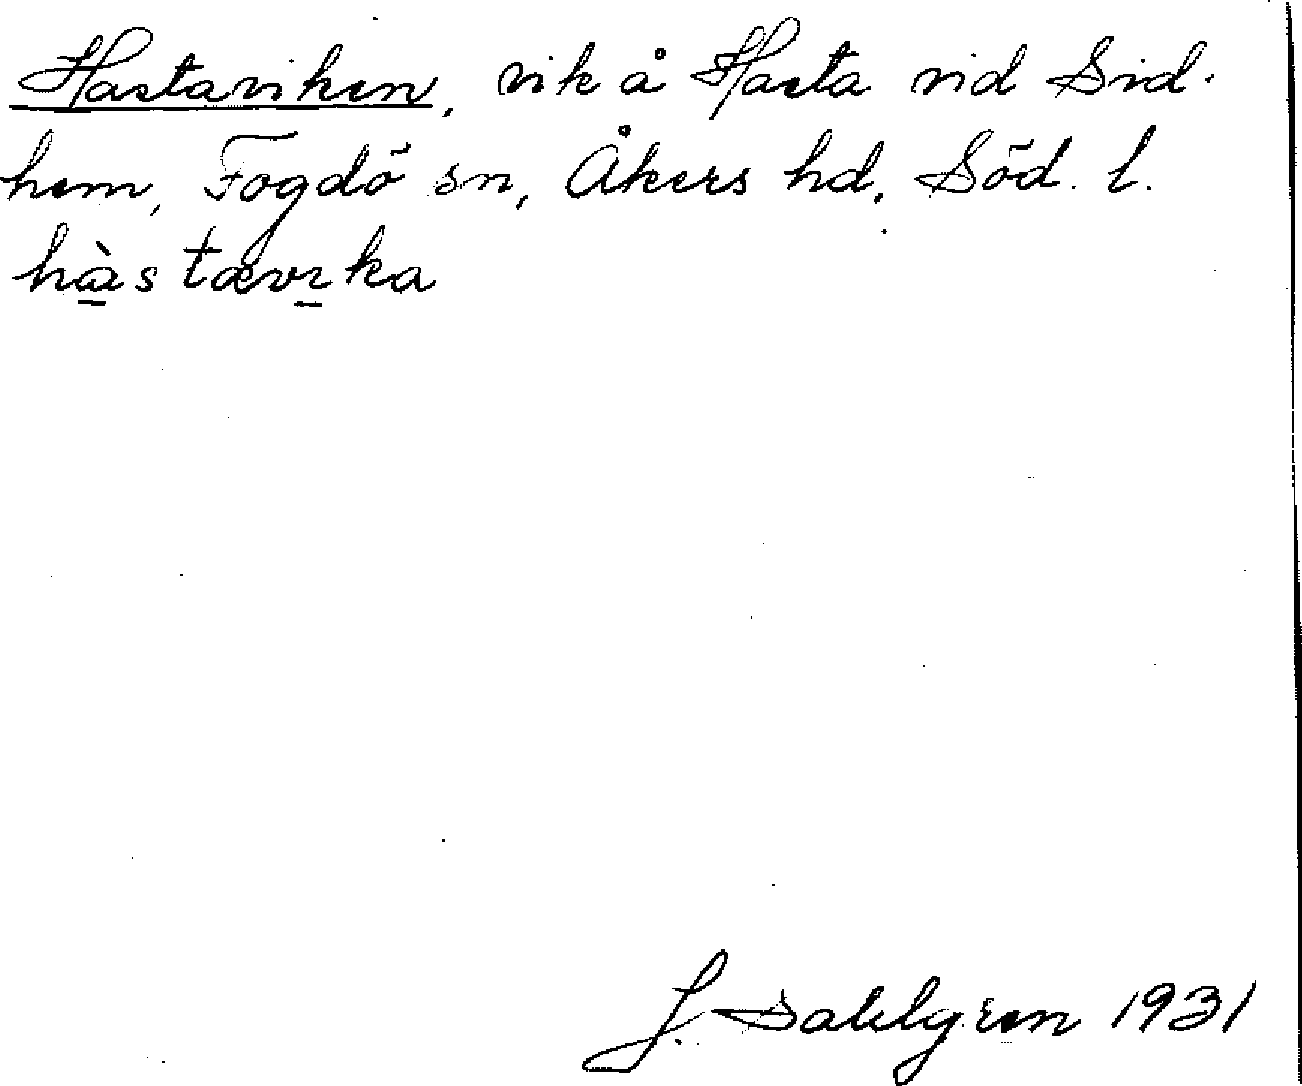 Hastaviken, vik å Hasta vid Sid-
hem, Fogdö sn, Åkers hd, Söd. l.
hà̱s tævi̱ka
J. Dahlgren 1931